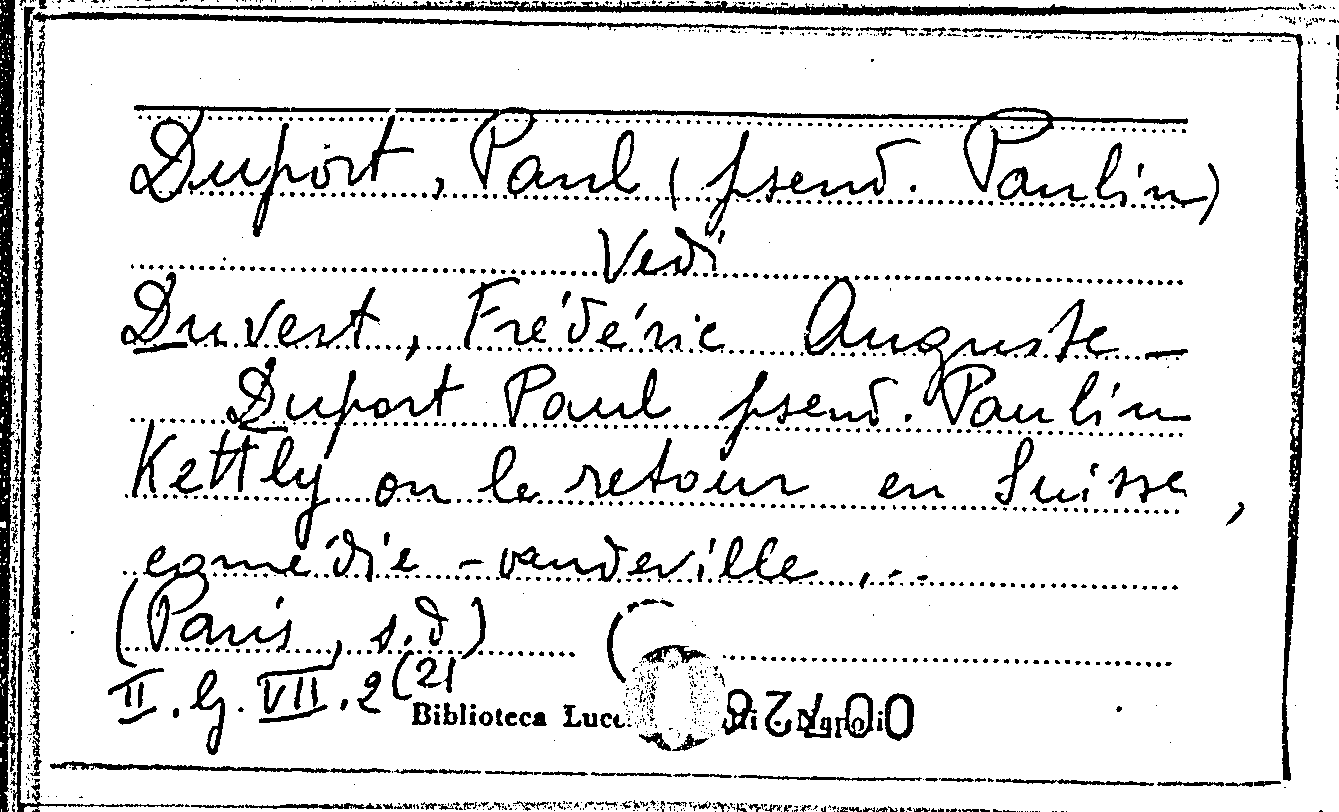 Duport, Paul (pseud. Paulin)
Vedi
Duvert, Frédéric Auguste -
Duport Paul pseud. Paulin
Kettly ou le retour en Suisse,
comédie-vaudeville...
(Paris, s.d)
II. G. VII. 2 (21
Biblioteca